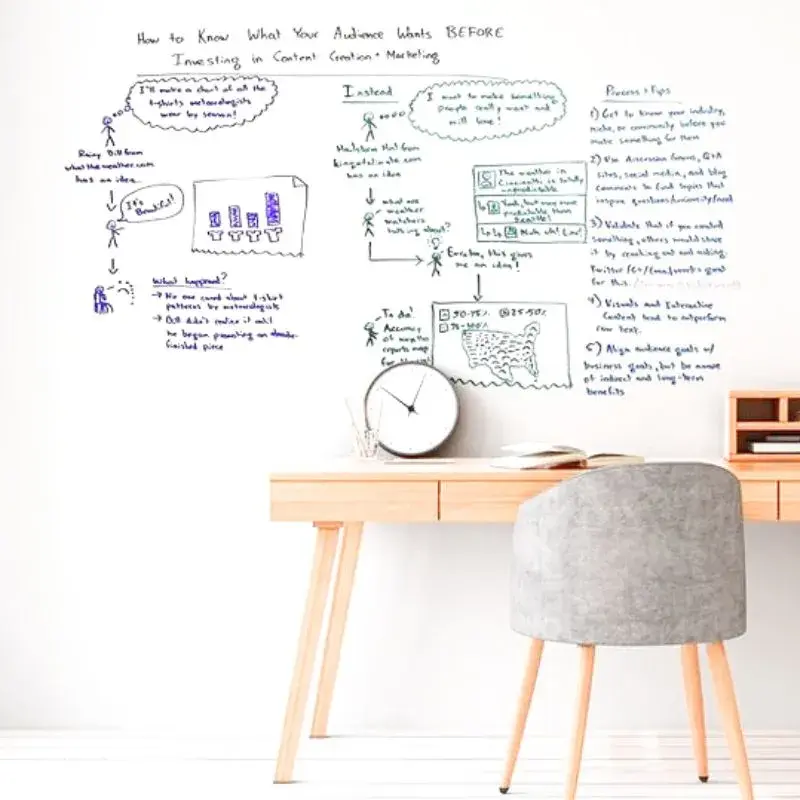 How to Know What Your Audience Wants BEFORE
Investing in Content Creation + Marketing
I'll make a chart of all the
t-shirts meteorologists
wear by season!
Rainy Bill from
whattheweather.com
has an idea...
It's
Beautiful!
What happened?
→ No one cared about t-shirt
patterns by meteorologists
→ Bill didn't realize it until
he began promoting an already
finished piece
Instead
I want to make something
people really want and
will love!
Hailstorm Hal from
kingofclimate.com
has an idea
what are
weather
watchers
talking about?
The weather in
Cincinnati is totally
unpredictable
Yeah, but way more
predictable than
Seattle!
Nuh uh!
Eureka, this gives
me an idea!
To do:
Accuracy
of weather
reports map
50-75%
25-50%
75-100%
Process + Tips
1) Get to know your industry,
niche, or community before you
make something for them
2) Use discussion forums, Q+A
sites, social media, and blog
comments to find topics that
inspire questions/curiosity/need
3) Validate that if you created
something, others would share
it by reaching out and asking.
Twitter/G+/email/work good
for this.
4) Visuals and Interactive
Content tend to outperform
raw text.
5) Align audience goals w/
business goals, but be aware
of indirect and long-term
benefits